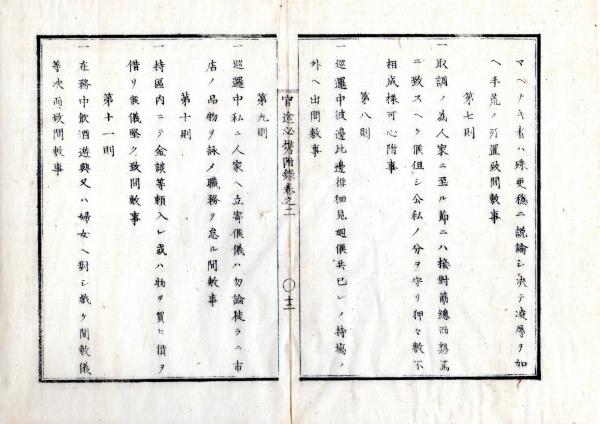 マヘアキ者ハ殊更穏ニ説諭シ決テ凌辱ヲ加
ヘ手荒ノ所置致間敷事
第七則
一取調ノ為人家ニ至ル節ニハ接對筋總而懇篤
ニ致スヘク候但シ公私ノ分ヲ守リ狎々敷不
相成様可心附事
第八則
一巡邏中彼邊此邊徘徊見廻候共己レノ持場ノ
外ヘ出間敷事
官途必携附録巻之二
〇十二
第九則
一巡邏中私ニ人家ヘ立寄候儀ハ勿論徒ラニ市
店ノ品物ヲ詠メ職務ヲ怠ル間敷事
第十則
一持區内ニテ金談等頼入レ或ハ物ヲ買ヒ價ヲ
借リ候儀堅ク致間敷事
第十一則
一在務中飲酒遊興又ハ婦女ヘ對シ戯ケ間敷儀
等決而致間敷事